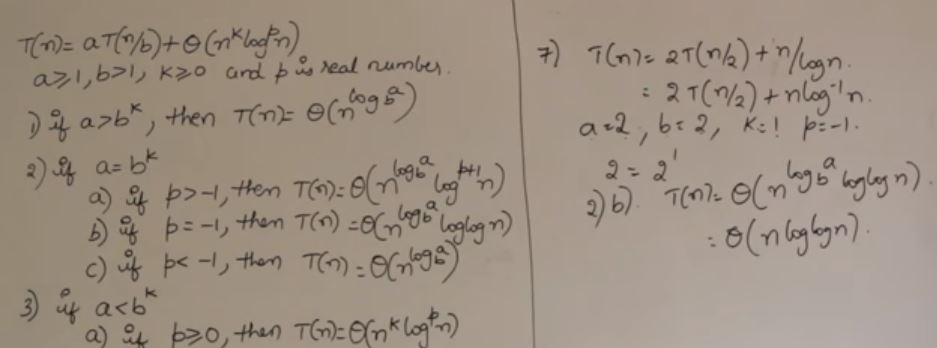 T(n) = aT(n/b) + θ(n^k log^p n)
a≥1, b>1, k≥0 and p is real number.
1) if a>b^k, then T(n) = θ(n^log_b^a)
2) if a=b^k
a) if p>-1, then T(n) = θ(n^log_b^a log^p+1 n)
b) if p=-1, then T(n) = θ(n^log_b^a loglogn)
c) if p<-1, then T(n) = θ(n^log_b^a)
3) if a<b^k
a) if p≥0, then T(n) = θ(n^k log^p n)
7) T(n) = 2T(n/2) + n/logn.
= 2T(n/2) + nlog^-1 n.
a=2, b=2, k=1 p=-1.
2 = 2^1
2) b) T(n) = θ(n^log_b^a loglogn).
= θ(nloglogn).